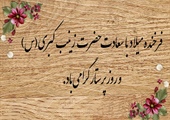 فرخنده میلاد با سعادت حضرت زینب کبری (س)
و روز پرستار گرامی باد.